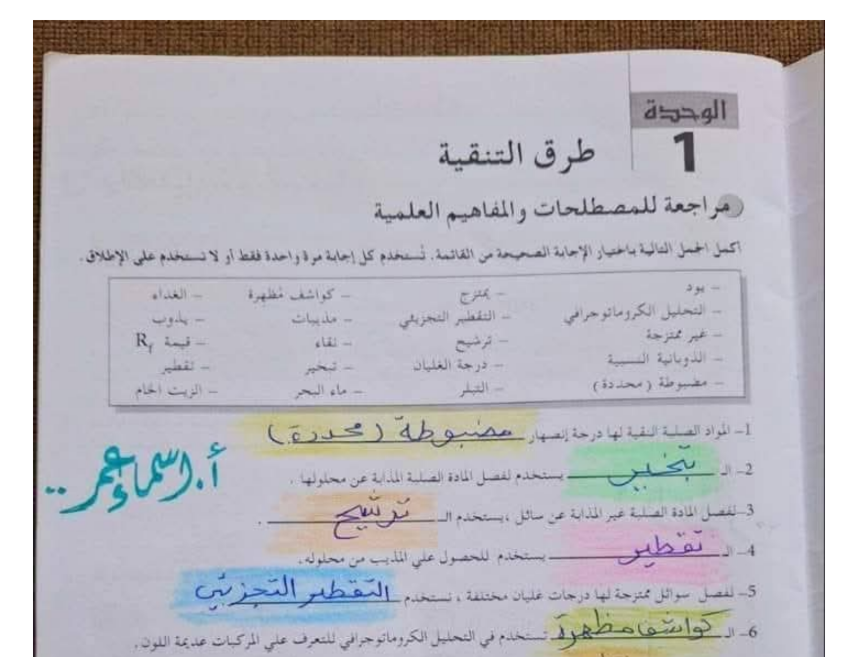 الوحدة
1
طرق التنقية
مراجعة للمصطلحات والمفاهيم العلمية
اكمل الجمل التالية باختيار الإجابة الصحيحة من القائمة. تُستخدم كل إجابة مرة واحدة فقط أو لا تستخدم على الإطلاق.
– يود – يمتزج – كواشف مُظهرة – الغذاء
– التحليل الكروماتوجرافي – التقطير التجزيئي – مذيبات – يذوب
– غير ممتزجة – ترشيح – نقاء – قيمة Rf
– الذوبانية النسبية – درجة الغليان – تبخير – تقطير
– مضبوطة (محددة) – التبلر – ماء البحر – الزيت الخام
1– المواد الصلبة النقية لها درجة إنصهار مضبوطة (محددة)
2– الـ تبخير يستخدم لفصل المادة الصلبة المذابة عن محلولها .
أ. اسماء عمر ..
3–لفصل المادة الصلبة غير المذابة عن سائل ، يستخدم الـ ترشيح .
4– الـ تقطير يستخدم للحصول علي المذيب من محلوله.
5– لفصل سوائل ممتزجة لها درجات غليان مختلفة ، نستخدم التقطير التجزيئي
6– الـ كواشف مظهرة تستخدم في التحليل الكروماتوجرافي للتعرف علي المركبات عديمة اللون .